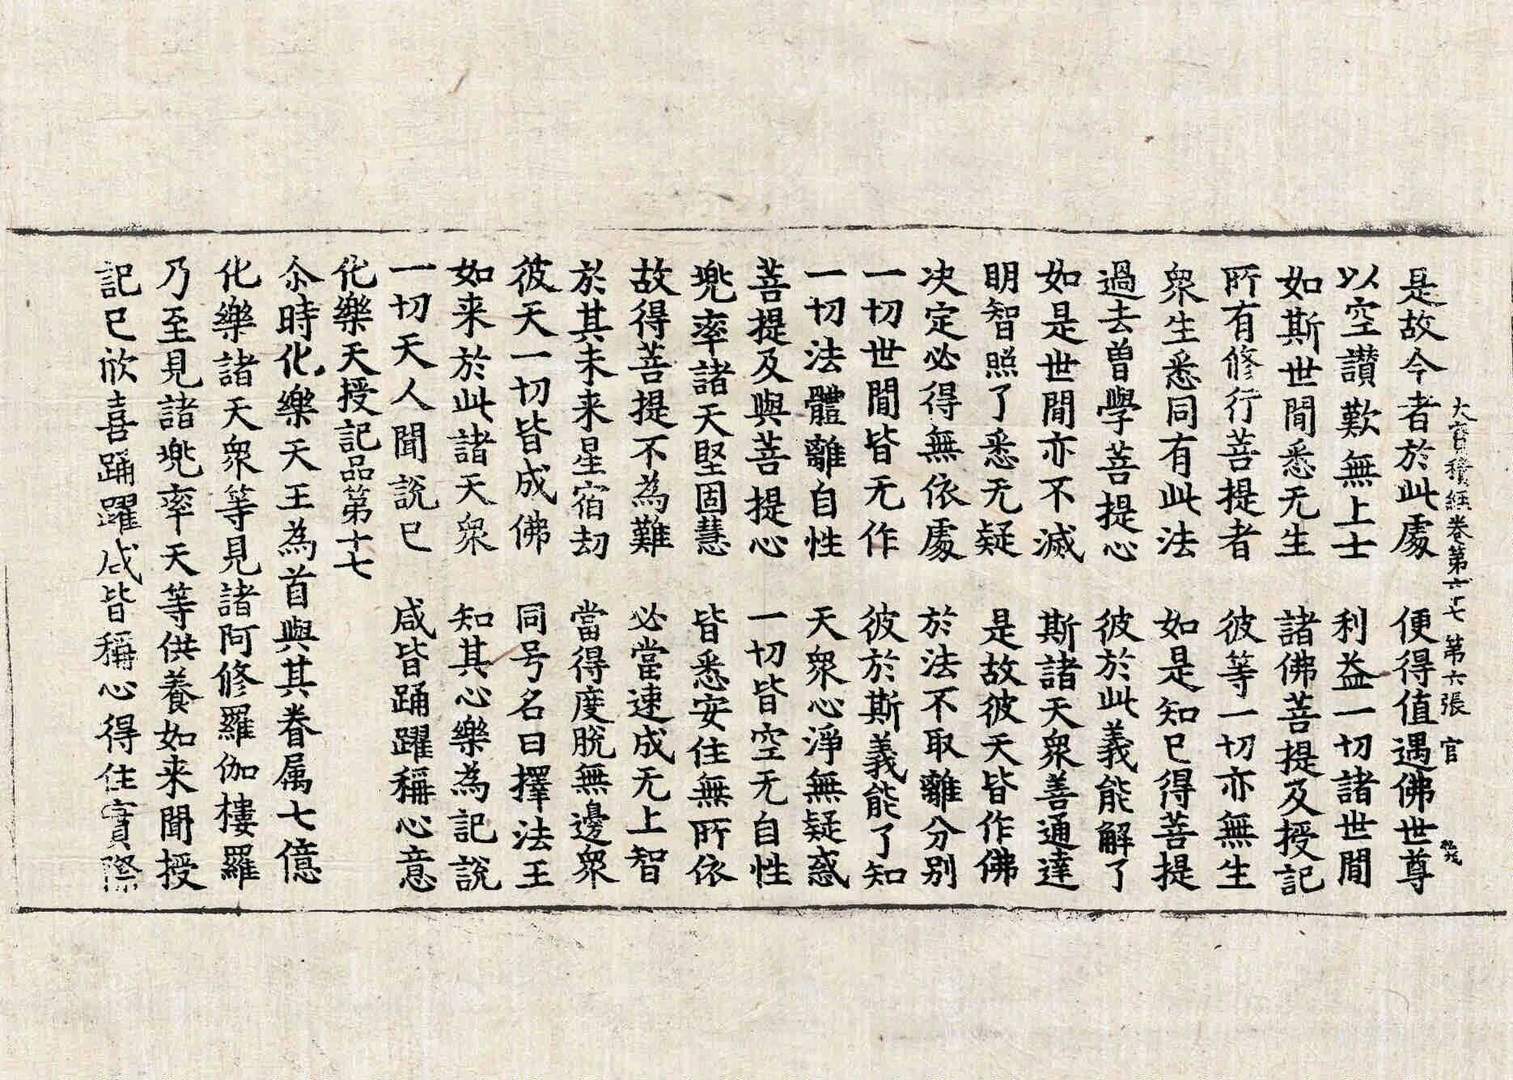 大寶積經卷第六十七 第六張 官
是故今者於此處 便得值遇佛世尊
以空讃歎無上士 利益一切諸世間
如斯世間悉无生 諸佛菩提及授記
所有修行菩提者 彼等一切亦無生
衆生悉同有此法 如是知已得菩提
過去曾學菩提心 彼於此義能解了
如是世間亦不滅 斯諸天衆善通達
明智照了悉无疑 是故彼天皆作佛
决定必得無依處 於法不取離分别
一切世間皆无作 彼於斯義能了知
一切法體離自性 天衆心淨無疑惑
菩提及與菩提心 一切皆空无自性
兜率諸天堅固慧 皆悉安住無所依
故得菩提不為難 必當速成无上智
於其未来星宿劫 當得度脫無邊衆
彼天一切皆成佛 同号名曰擇法王
如来於此諸天衆 知其心樂為記說
一切天人聞說已 咸皆踊躍稱心意
化樂天授記品第十七
尒時化樂天王為首與其眷属七億
化樂諸天衆等見諸阿修羅伽樓羅
乃至見諸兜率天等供養如来聞授
記已欣喜踊躍咸皆稱心得住實際